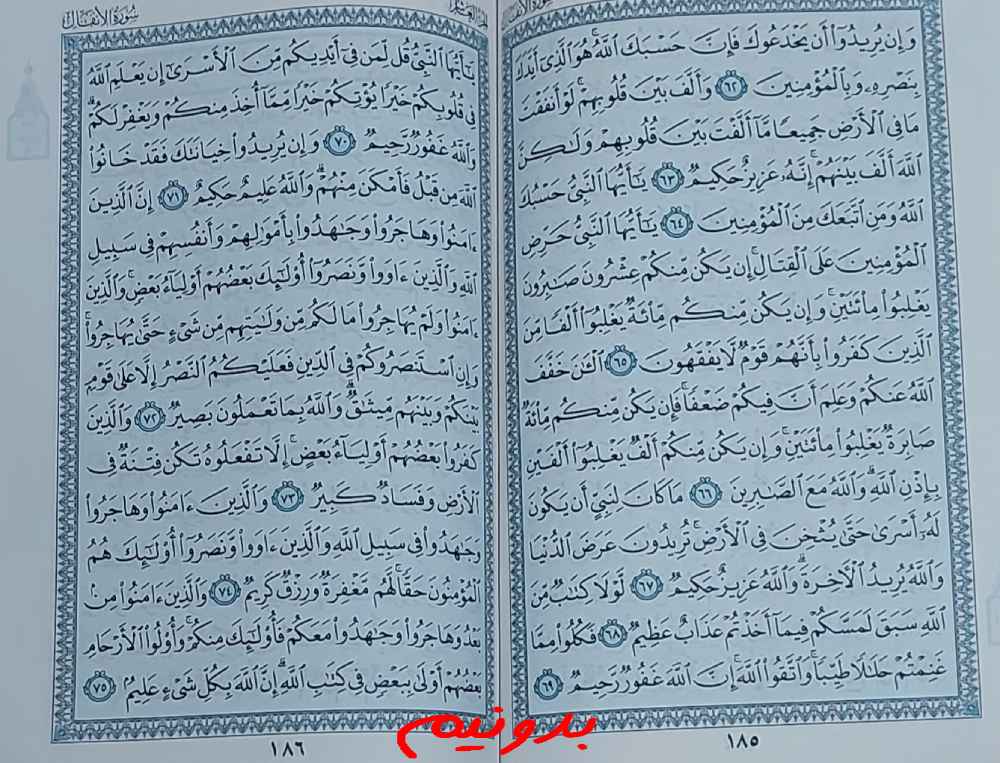 سُورَةُ الأَنفَالِ
وَإِن يُرِيدُوٓا۟ أَن يَخْدَعُوكَ فَإِنَّ حَسْبَكَ ٱللَّهُ ۚ هُوَ ٱلَّذِىٓ أَيَّدَكَ
بِنَصْرِهِۦ وَبِٱلْمُؤْمِنِينَ ٦٢ وَأَلَّفَ بَيْنَ قُلُوبِهِمْ ۚ لَوْ أَنفَقْتَ
مَا فِى ٱلْأَرْضِ جَمِيعًا مَّآ أَلَّفْتَ بَيْنَ قُلُوبِهِمْ وَلَٰكِنَّ
ٱللَّهَ أَلَّفَ بَيْنَهُمْ ۚ إِنَّهُۥ عَزِيزٌ حَكِيمٌ ٦٣ يَٰٓأَيُّهَا ٱلنَّبِىُّ حَسْبُكَ
ٱللَّهُ وَمَنِ ٱتَّبَعَكَ مِنَ ٱلْمُؤْمِنِينَ ٦٤ يَٰٓأَيُّهَا ٱلنَّبِىُّ حَرِّضِ
ٱلْمُؤْمِنِينَ عَلَى ٱلْقِتَالِ ۚ إِن يَكُن مِّنكُمْ عِشْرُونَ صَٰبِرُونَ
يَغْلِبُوا۟ مِا۟ئَتَيْنِ ۚ وَإِن يَكُن مِّنكُم مِّا۟ئَةٌ يَغْلِبُوٓا۟ أَلْفًا مِّنَ
ٱلَّذِينَ كَفَرُوا۟ بِأَنَّهُمْ قَوْمٌ لَّا يَفْقَهُونَ ٦٥ ٱلْـَٰٔنَ خَفَّفَ
ٱللَّهُ عَنكُمْ وَعَلِمَ أَنَّ فِيكُمْ ضَعْفًا ۚ فَإِن يَكُن مِّنكُم مِّا۟ئَةٌ
صَابِرَةٌ يَغْلِبُوا۟ مِا۟ئَتَيْنِ ۚ وَإِن يَكُن مِّنكُمْ أَلْفٌ يَغْلِبُوٓا۟ أَلْفَيْنِ
بِإِذْنِ ٱللَّهِ ۗ وَٱللَّهُ مَعَ ٱلصَّٰبِرِينَ ٦٦ مَا كَانَ لِنَبِىٍّ أَن يَكُونَ
لَهُۥٓ أَسْرَىٰ حَتَّىٰ يُثْخِنَ فِى ٱلْأَرْضِ ۚ تُرِيدُونَ عَرَضَ ٱلدُّنْيَا
وَٱللَّهُ يُرِيدُ ٱلْـَٔاخِرَةَ ۗ وَٱللَّهُ عَزِيزٌ حَكِيمٌ ٦٧ لَّوْلَا كِتَٰبٌ مِّنَ
ٱللَّهِ سَبَقَ لَمَسَّكُمْ فِيمَآ أَخَذْتُمْ عَذَابٌ عَظِيمٌ ٦٨ فَكُلُوا۟ مِمَّا
غَنِمْتُمْ حَلَٰلًا طَيِّبًا ۚ وَٱتَّقُوا۟ ٱللَّهَ ۚ إِنَّ ٱللَّهَ غَفُورٌ رَّحِيمٌ ٦٩
١٨٥
سُورَةُ الأَنفَالِ
يَٰٓأَيُّهَا ٱلنَّبِىُّ قُل لِّمَن فِىٓ أَيْدِيكُم مِّنَ ٱلْأَسْرَىٰٓ إِن يَعْلَمِ ٱللَّهُ
فِى قُلُوبِكُمْ خَيْرًا يُؤْتِكُمْ خَيْرًا مِّمَّآ أُخِذَ مِنكُمْ وَيَغْفِرْ لَكُمْ ۗ
وَٱللَّهُ غَفُورٌ رَّحِيمٌ ٧٠ وَإِن يُرِيدُوا۟ خِيَانَتَكَ فَقَدْ خَانُوا۟
ٱللَّهَ مِن قَبْلُ فَأَمْكَنَ مِنْهُمْ ۗ وَٱللَّهُ عَلِيمٌ حَكِيمٌ ٧١ إِنَّ ٱلَّذِينَ
ءَامَنُوا۟ وَهَاجَرُوا۟ وَجَٰهَدُوا۟ بِأَمْوَٰلِهِمْ وَأَنفُسِهِمْ فِى سَبِيلِ
ٱللَّهِ وَٱلَّذِينَ ءَاوَوا۟ وَّنَصَرُوٓا۟ أُو۟لَٰٓئِكَ بَعْضُهُمْ أَوْلِيَآءُ بَعْضٍ ۚ وَٱلَّذِينَ
ءَامَنُوا۟ وَلَمْ يُهَاجِرُوا۟ مَا لَكُم مِّن وَلَٰيَتِهِم مِّن شَىْءٍ حَتَّىٰ يُهَاجِرُوا۟ ۚ
وَإِنِ ٱسْتَنصَرُوكُمْ فِى ٱلدِّينِ فَعَلَيْكُمُ ٱلنَّصْرُ إِلَّا عَلَىٰ قَوْمٍۭ
بَيْنَكُمْ وَبَيْنَهُم مِّيثَٰقٌ ۗ وَٱللَّهُ بِمَا تَعْمَلُونَ بَصِيرٌ ٧٢ وَٱلَّذِينَ
كَفَرُوا۟ بَعْضُهُمْ أَوْلِيَآءُ بَعْضٍ ۚ إِلَّا تَفْعَلُوهُ تَكُن فِتْنَةٌ فِى
ٱلْأَرْضِ وَفَسَادٌ كَبِيرٌ ٧٣ وَٱلَّذِينَ ءَامَنُوا۟ وَهَاجَرُوا۟
وَجَٰهَدُوا۟ فِى سَبِيلِ ٱللَّهِ وَٱلَّذِينَ ءَاوَوا۟ وَّنَصَرُوٓا۟ أُو۟لَٰٓئِكَ هُمُ
ٱلْمُؤْمِنُونَ حَقًّا ۚ لَّهُم مَّغْفِرَةٌ وَرِزْقٌ كَرِيمٌ ٧٤ وَٱلَّذِينَ ءَامَنُوا۟ مِنۢ
بَعْدُ وَهَاجَرُوا۟ وَجَٰهَدُوا۟ مَعَكُمْ فَأُو۟لَٰٓئِكَ مِنكُمْ ۚ وَأُو۟لُوا۟ ٱلْأَرْحَامِ
بَعْضُهُمْ أَوْلَىٰ بِبَعْضٍ فِى كِتَٰبِ ٱللَّهِ ۗ إِنَّ ٱللَّهَ بِكُلِّ شَىْءٍ عَلِيمٌۢ ٧٥
١٨٦
بدونیم